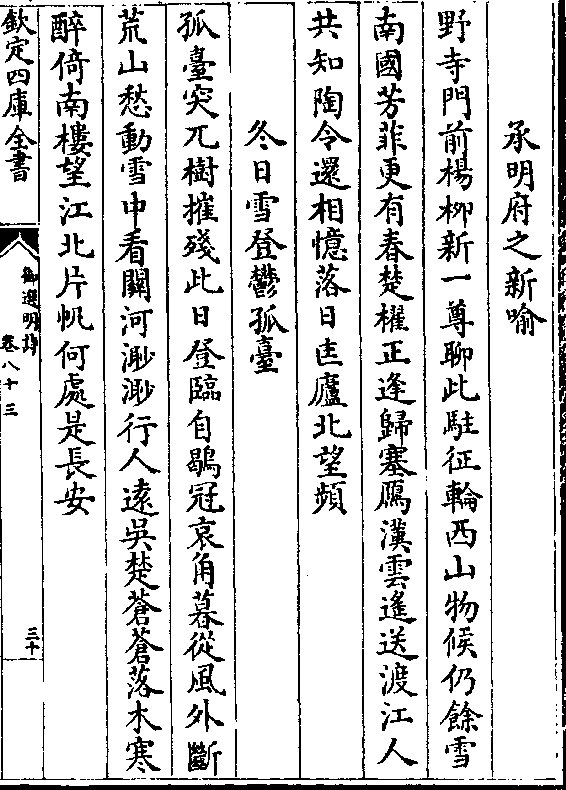 承明府之新喻
野寺門前楊柳新一尊聊此駐征輪西山物候仍餘雪
南國芳菲更有春楚櫂正逢歸塞鴈漢雲遙送渡江人
共知陶令還相憶落日匡廬北望頻
冬日雪登鬱孤臺
孤臺突兀樹摧殘此日登臨自鶡冠哀角暮從風外斷
荒山愁動雪中看關河渺渺行人遠吳楚蒼蒼落木寒
醉倚南樓望江北片帆何處是長安
欽定四庫全書
御選明詩
卷八十三
三十